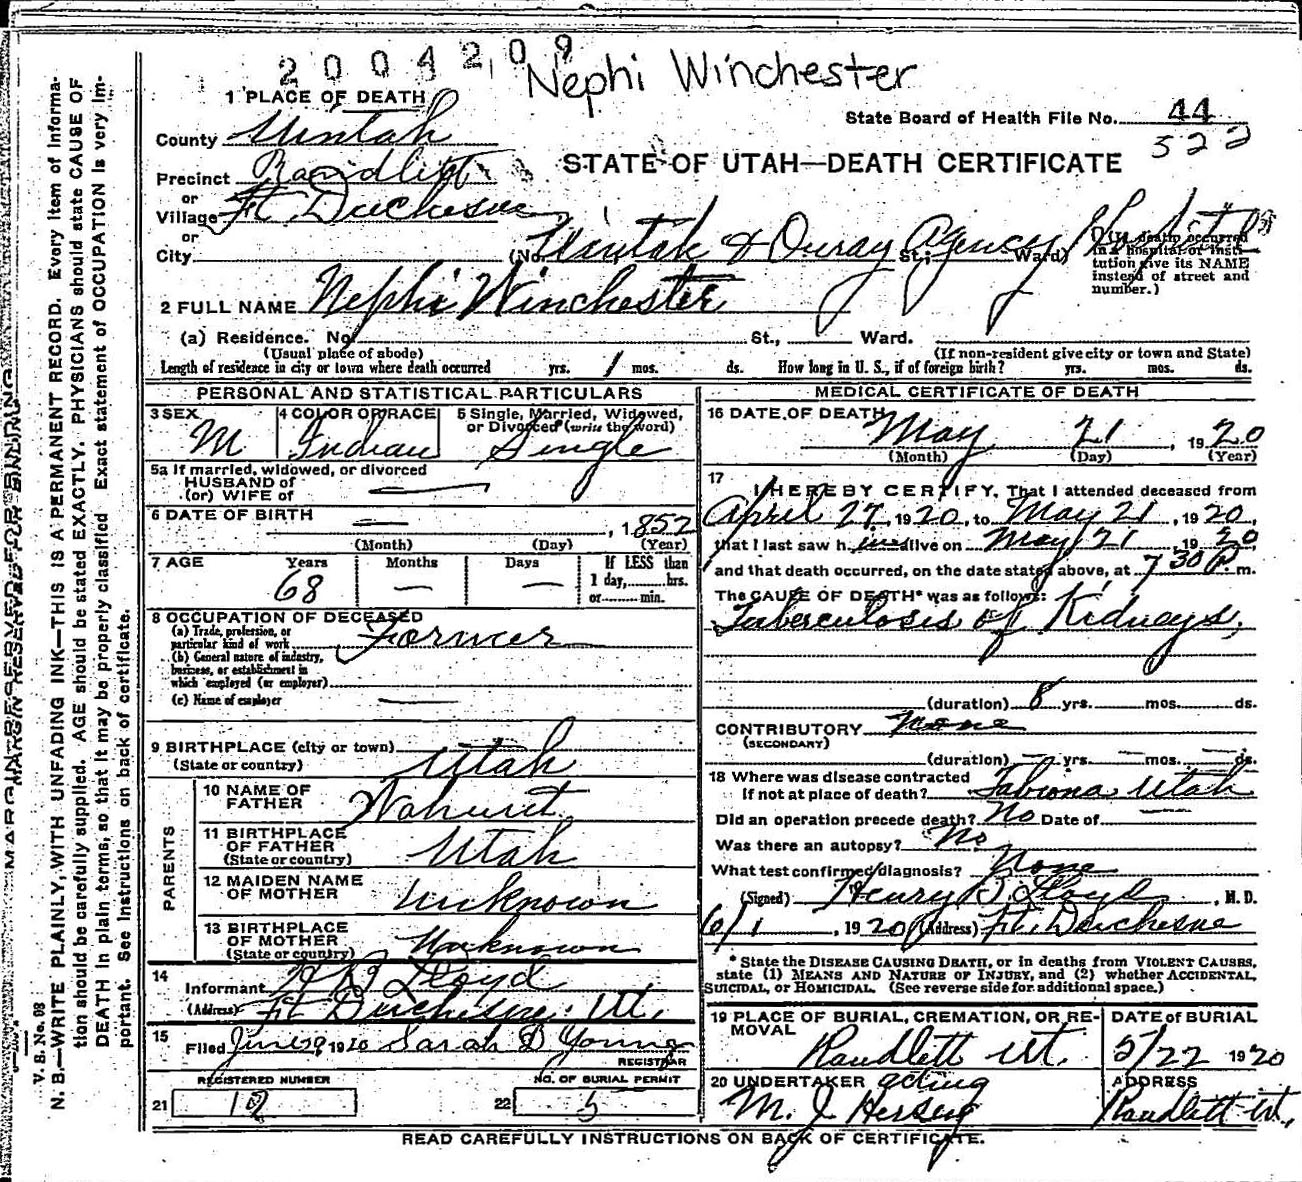 2004209
Nephi Winchester
1 PLACE OF DEATH
State Board of Health File No. 44
522
County Uintah
STATE OF UTAH—DEATH CERTIFICATE
Precinct Randlett
or
Village Ft. Duchesne
or
City (No. Uintah & Ouray Agency Hospital St.; Ward)
(If death occurred in a hospital or insti-
tution give its NAME
instead of street and
number.)
2 FULL NAME Nephi Winchester
(a) Residence. No. St., Ward.
(Usual place of abode) (If non-resident give city or town and State)
Length of residence in city or town where death occurred yrs. 1 mos. ds. How long in U. S., if of foreign birth? yrs. mos. ds.
PERSONAL AND STATISTICAL PARTICULARS
3 SEX M
4 COLOR OR RACE Indian
5 Single, Married, Widowed,
or Divorced (write the word)
Single
5a If married, widowed, or divorced
HUSBAND of
(or) WIFE of —
6 DATE OF BIRTH — , 1852
(Month) (Day) (Year)
7 AGE Years Months Days If LESS than
68 — — 1 day, hrs.
or min.
8 OCCUPATION OF DECEASED
(a) Trade, profession, or
particular kind of work Farmer
(b) General nature of industry,
business, or establishment in
which employed (or employer)
(c) Name of employer —
9 BIRTHPLACE (city or town)
(State or country) Utah
PARENTS
10 NAME OF
FATHER Wahuret
11 BIRTHPLACE
OF FATHER
(State or country) Utah
12 MAIDEN NAME
OF MOTHER Unknown
13 BIRTHPLACE
OF MOTHER
(State or country) Unknown
14
Informant Lloyd
(Address) Ft. Duchesne Ut.
15
Filed June 29, 1920 Sarah D Young
REGISTRAR
REGISTERED NUMBER NO. OF BURIAL PERMIT
21 12 22 5
MEDICAL CERTIFICATE OF DEATH
16 DATE OF DEATH
May 21, 1920
(Month) (Day) (Year)
17
I HEREBY CERTIFY, That I attended deceased from
April 27, 1920, to May 21, 1920,
that I last saw him alive on May 21, 1920
and that death occurred, on the date stated above, at 7 30 P. m.
The CAUSE OF DEATH* was as follows:
Tuberculosis of Kidneys,
(duration) 8 yrs. mos. ds.
CONTRIBUTORY None
(SECONDARY)
(duration) — yrs. — mos. — ds.
18 Where was disease contracted
If not at place of death? Tabiona Utah
Did an operation precede death? No Date of —
Was there an autopsy? No
What test confirmed diagnosis? None
(Signed) Henry B. Lloyd, M. D.
6/1, 1920 (Address) Ft. Duchesne
* State the DISEASE CAUSING DEATH, or in deaths from VIOLENT CAUSES,
state (1) MEANS AND NATURE OF INJURY, and (2) whether ACCIDENTAL,
SUICIDAL, or HOMICIDAL. (See reverse side for additional space.)
19 PLACE OF BURIAL, CREMATION, OR RE-
MOVAL
Randlett Ut.
DATE of BURIAL
5/22 1920
20 UNDERTAKER acting
M. J. Hersey
ADDRESS
Randlett Ut.
READ CAREFULLY INSTRUCTIONS ON BACK OF CERTIFICATE.
MARGIN RESERVED FOR BINDING
V. S. No. 98
N. B.—WRITE PLAINLY, WITH UNFADING INK—THIS IS A PERMANENT RECORD. Every item of informa-
tion should be carefully supplied. AGE should be stated EXACTLY. PHYSICIANS should state CAUSE OF
DEATH in plain terms, so that it may be properly classified. Exact statement of OCCUPATION is very im-
portant. See instructions on back of certificate.